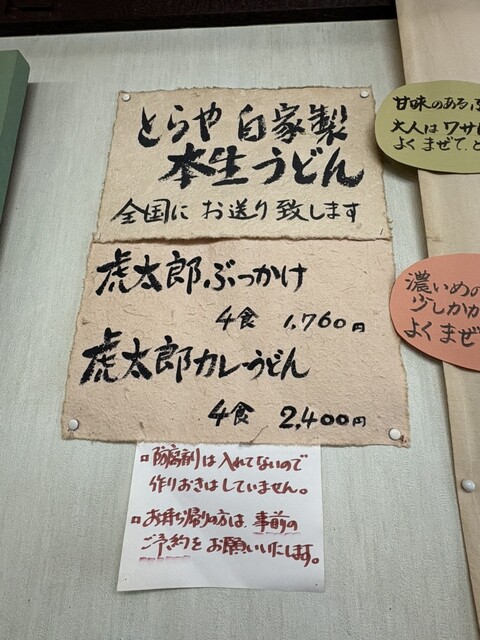 とらや自家製
本生うどん
全国にお送り致します
虎太郎ぶっかけ
4食 1,760円
虎太郎カレーうどん
4食 2,400円
防腐剤は入れてないので
作りおきはしていません。
お持ち帰りの方は、事前の
ご予約をお願いいたします。
甘味のある
大人はワサ
よくまぜて、
濃いめの
少しかか
よくまぜ